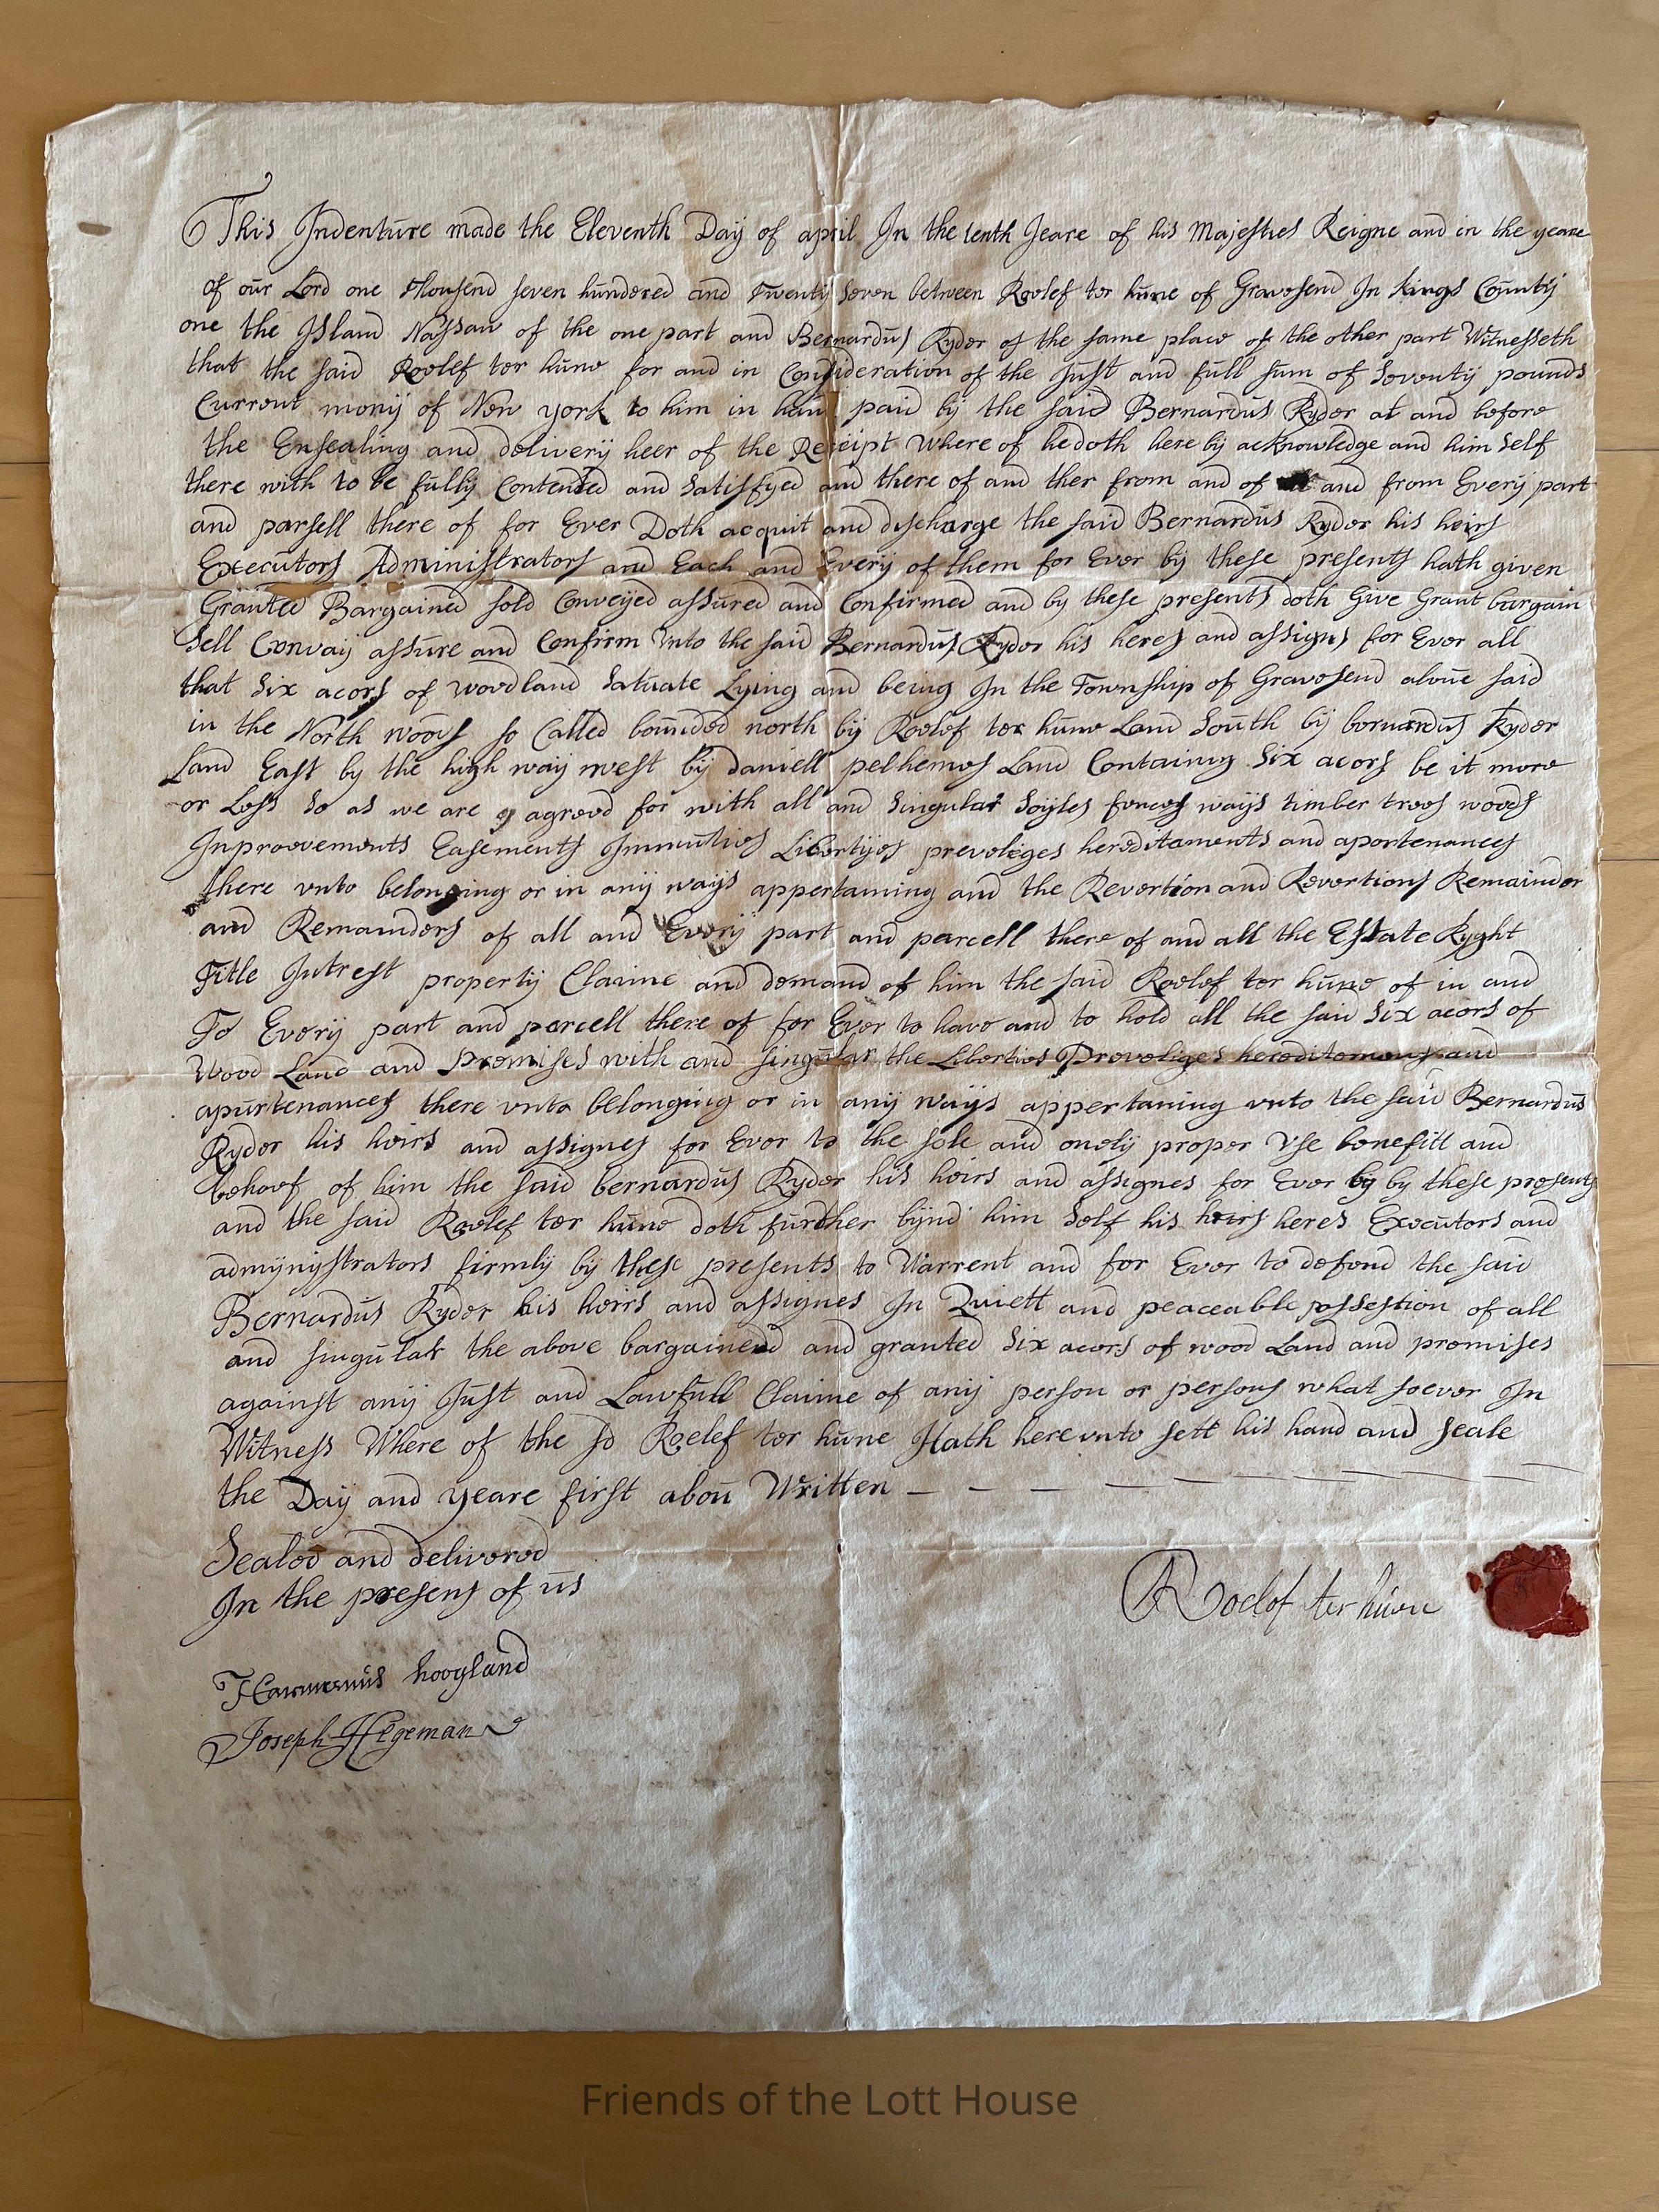 This Indenture made the Eleventh Day of april In the tenth Jeare of his Majesties Reigne and in the yeare
of our Lord one thousend seven hundered and Twenty Seven between Roelef ter hune of Gravesend In Kings County
one the Island Nassaw of the one part and Bernardus Ryder of the same place of the other part Witnesseth
that the said Roelef ter hune for and in Consideration of the Just and full sum of Seventy pounds
Current mony of New york to him in hand paid by the said Bernardus Ryder at and before
the Ensealing and delivery heer of the Receipt Where of he doth here by acknowledge and him Self
there with to be fully Contented and Satisfyed and there of and ther from and of and from Every part
and parsell there of for Ever Doth acquit and discharge the said Bernardus Ryder his heirs
Executors Administrators and Each and Every of them for Ever by these presents hath given
Granted Bargained sold Conveyed assured and Confirmed and by these presents doth Give Grant bargain
Sell Convay assure and Confirm Unto the said Bernardus Ryder his heres and assigns for Ever all
that Six acors of woodland Satuate Lying and being In the Township of Gravesend aboue said
in the North woods so Called bounded north by Roelef ter hune Land South by bernardus Ryder
Land East by the high way west by daniell pelhemes Land Containig Six acors be it more
or Less So as we are agreed for with all and Singular Soyles fences ways timber trees woods
Inproovements Easements Immuties Libertyes preveleges hereditaments and aportenances
there vnto belonging or in any ways appertaining and the Revertion and Revertions Remainder
and Remainders of all and Every part and parcell there of and all the Estate Ryght
Title Intrest property Claime and demand of him the said Roelef ter hune of in and
To Every part and parcell there of for Ever to have and to hold all the said Six acors of
Wood Land and Premises with and singular the Liberties Preveliges hereditemens and
apurtenances there vnto belonging or in any ways appertaning vnto the said Bernardus
Ryder his heirs and assignes for Ever to the sole and onely proper Vse benefitt and
behoof of him the said bernardus Ryder his heirs and assignes for Ever by by these presents
and the said Roelef ter hune doth further bynd him Self his heirs heres Executors and
admynystrators firmly by these presents to Warrent and for Ever to defend the said
Bernardus Ryder his heirs and assignes In Quiett and peaceable possestion of all
and singular the above bargained and granted Six acors of wood Land and premises
against any Just and Lawfull Claime of any person or persons what soever In
Witness Where of the sd Roelef ter hune Hath here vnto sett his hand and seale
the Day and yeare first abou Written
Sealed and delivered
In the presens of us
Roelof ter hune
Harmanus hoogland
Joseph Hegeman
Friends of the Lott House